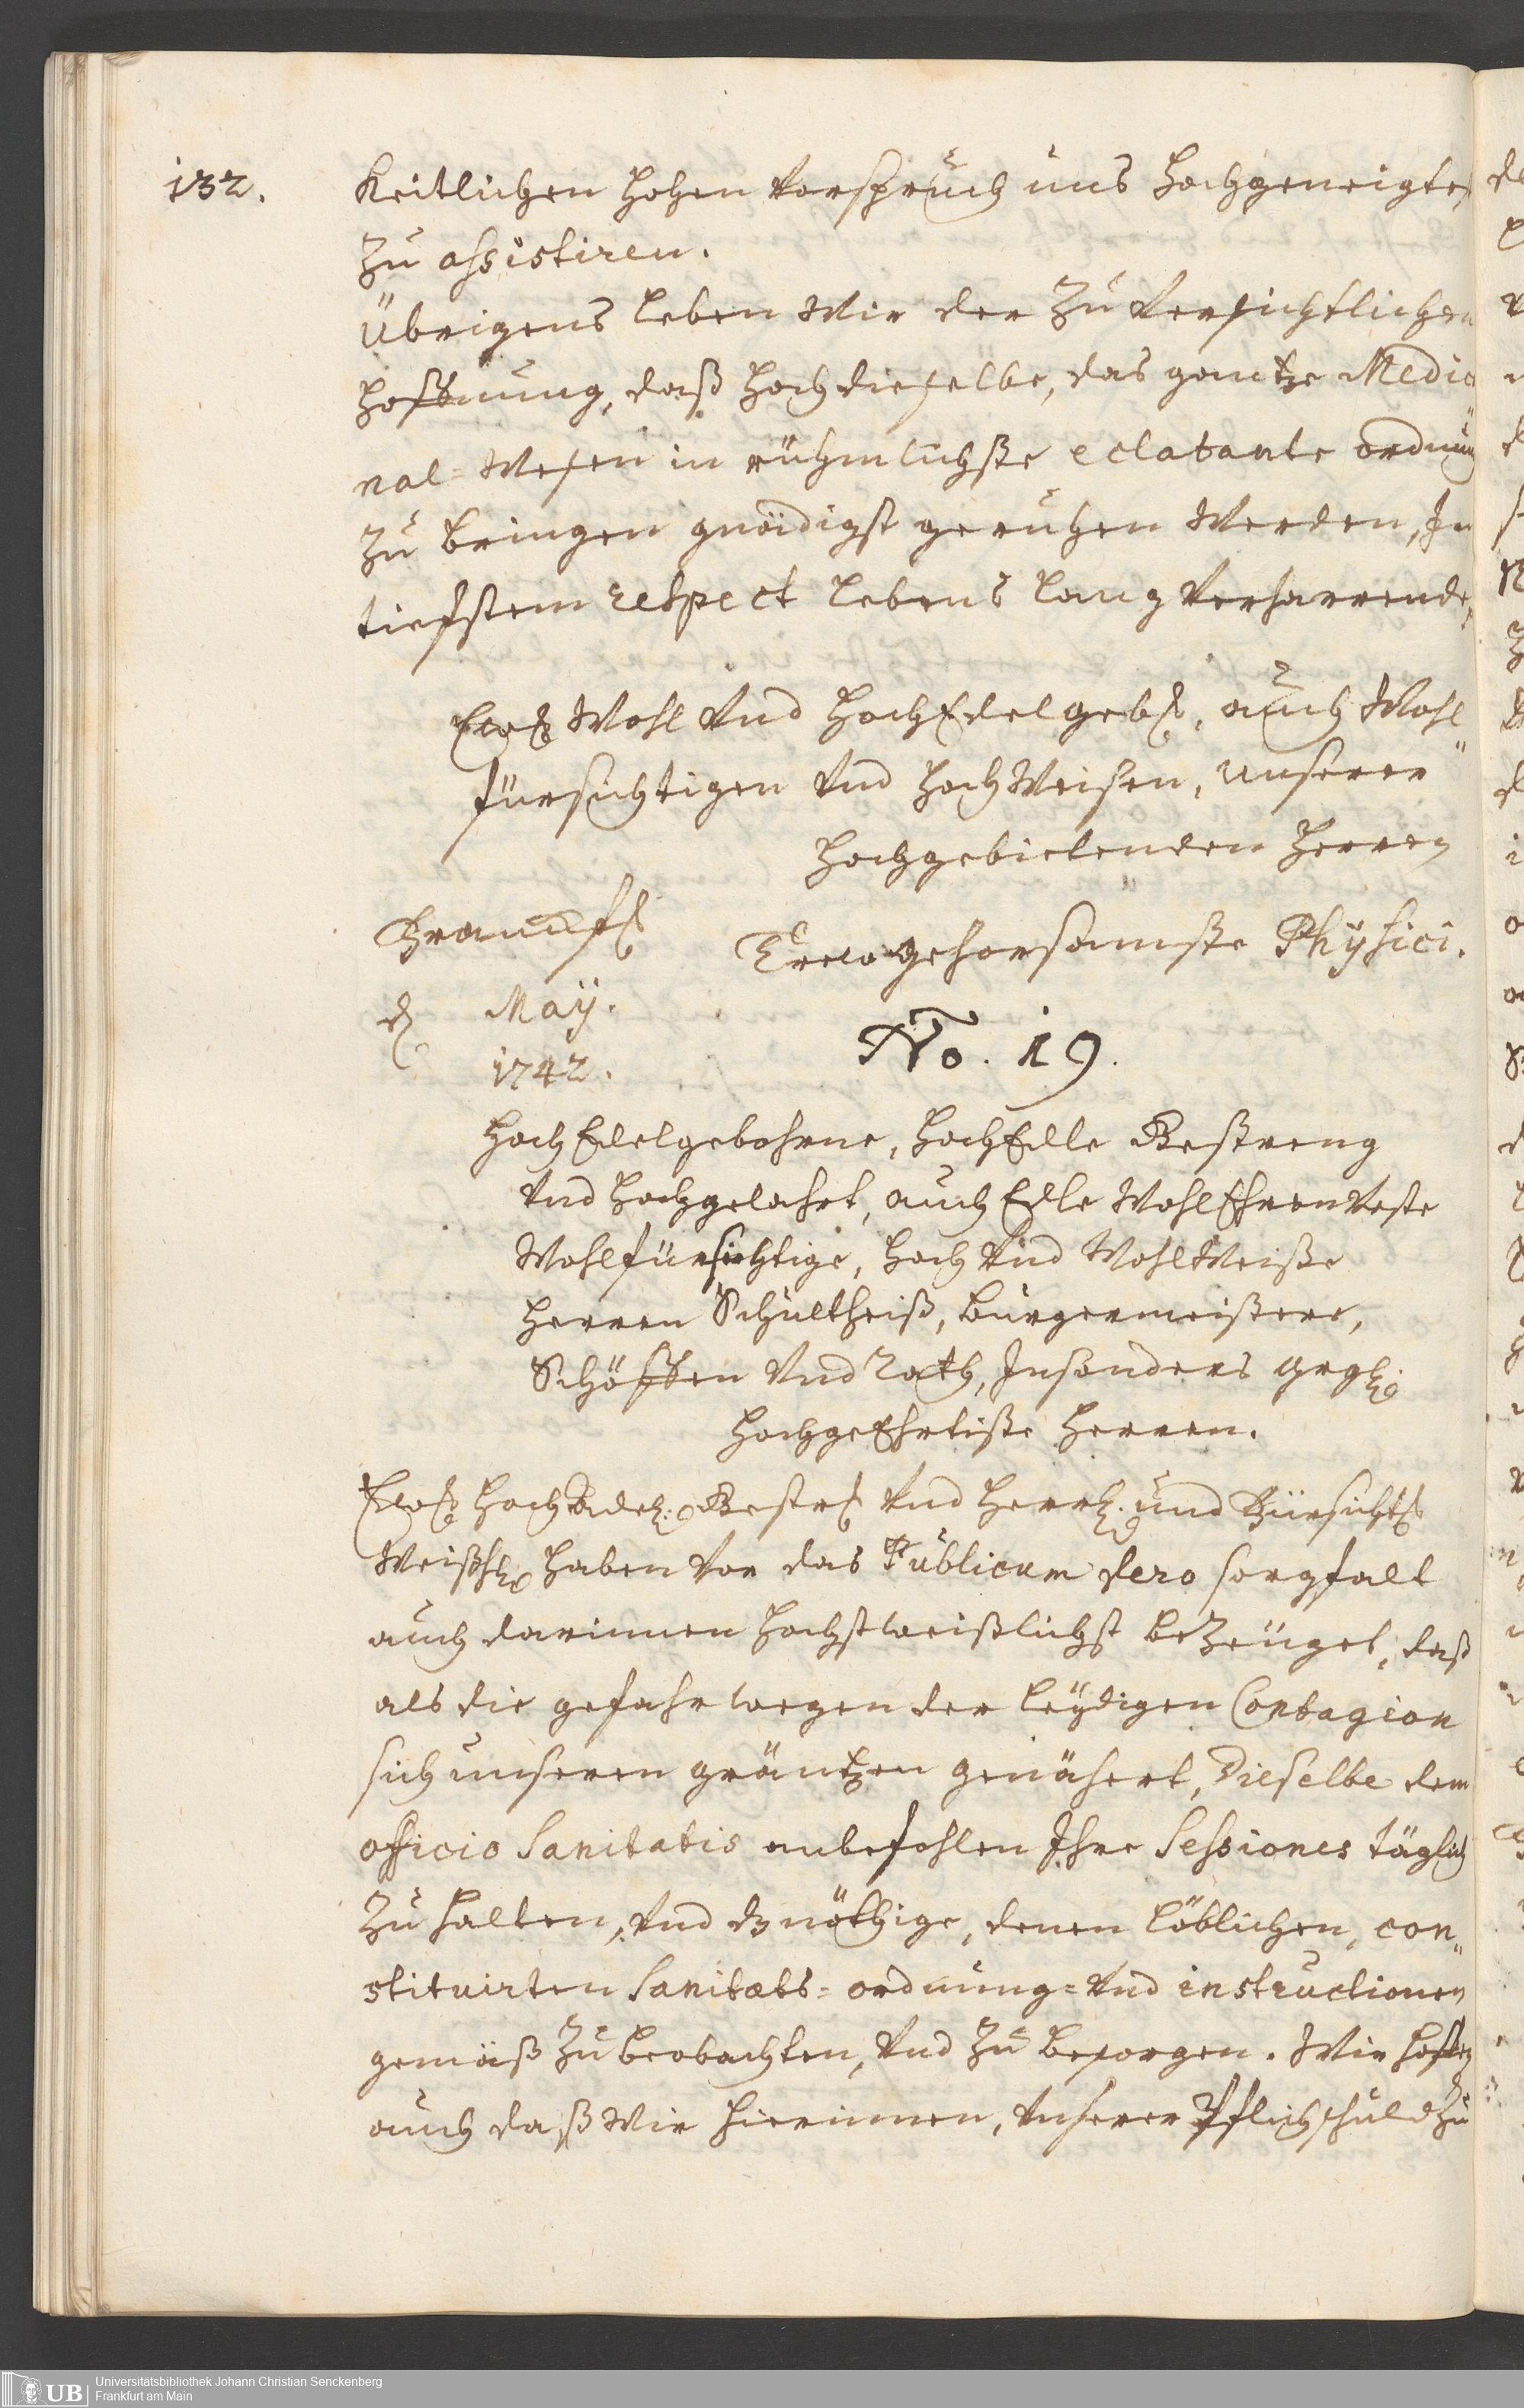 132.
Keitlichen hohen Vorspruch uns hochgeneigtest
zu assistiren.
Übrigens leben Wir der zu Versichtlichen
Hoffnung, daß hoch dieselbe, das gantze Medici
nal=Wesen in rühmlichste eclatante ordnung
zu bringen gnädigst geruhen Werden, In
tiefstem respect lebens lang Verharrende
Ew. Wohl Vnd HochEdelgeb. auch Wohl
fürsichtigen Vnd hoch Weisen, unserer
hochgebietenden Herren
Franckf.
Trewgehorsamste Physici.
d. May.
1742.
No. 19.
Hoch Edelgebohrne, HochEdle Gestreng
Vnd hochgelahrt, auch Edle WohlEhrenVeste
Wohlfürsichtige, hoch Vnd WohlWeiße
Herren Schultheiß, Bürgermeistere,
Schöffen Vnd Rath, Insonders grgl.
HochgeEhrtiste Herren.
Ew. Hoch Adel. Gestr. Vnd Herrl. und Fürsicht.
Weißh. haben Vor das Publicum dero sorgfalt
auch darinnen hochstweißlichst beZeüget, daß
als die gefahr wegen der leÿdigen Contagion
sich unseren gräntzen genähert, Dieselbe dem
officio Sanitatis anbefohlen Ihre Sessiones täglich
Zu halten, Vnd dz nöthige, denen löblichen, con„
stituirten Sanitæts=ordnung=Vnd instructionen
gemäß Zu beobachten, Vnd Zu besorgen. Wir hoffen
auch daß Wir hierinnen, Vnserer Pflichschuld zu
Universitätsbibliothek Johann Christian Senckenberg
UB Frankfurt am Main